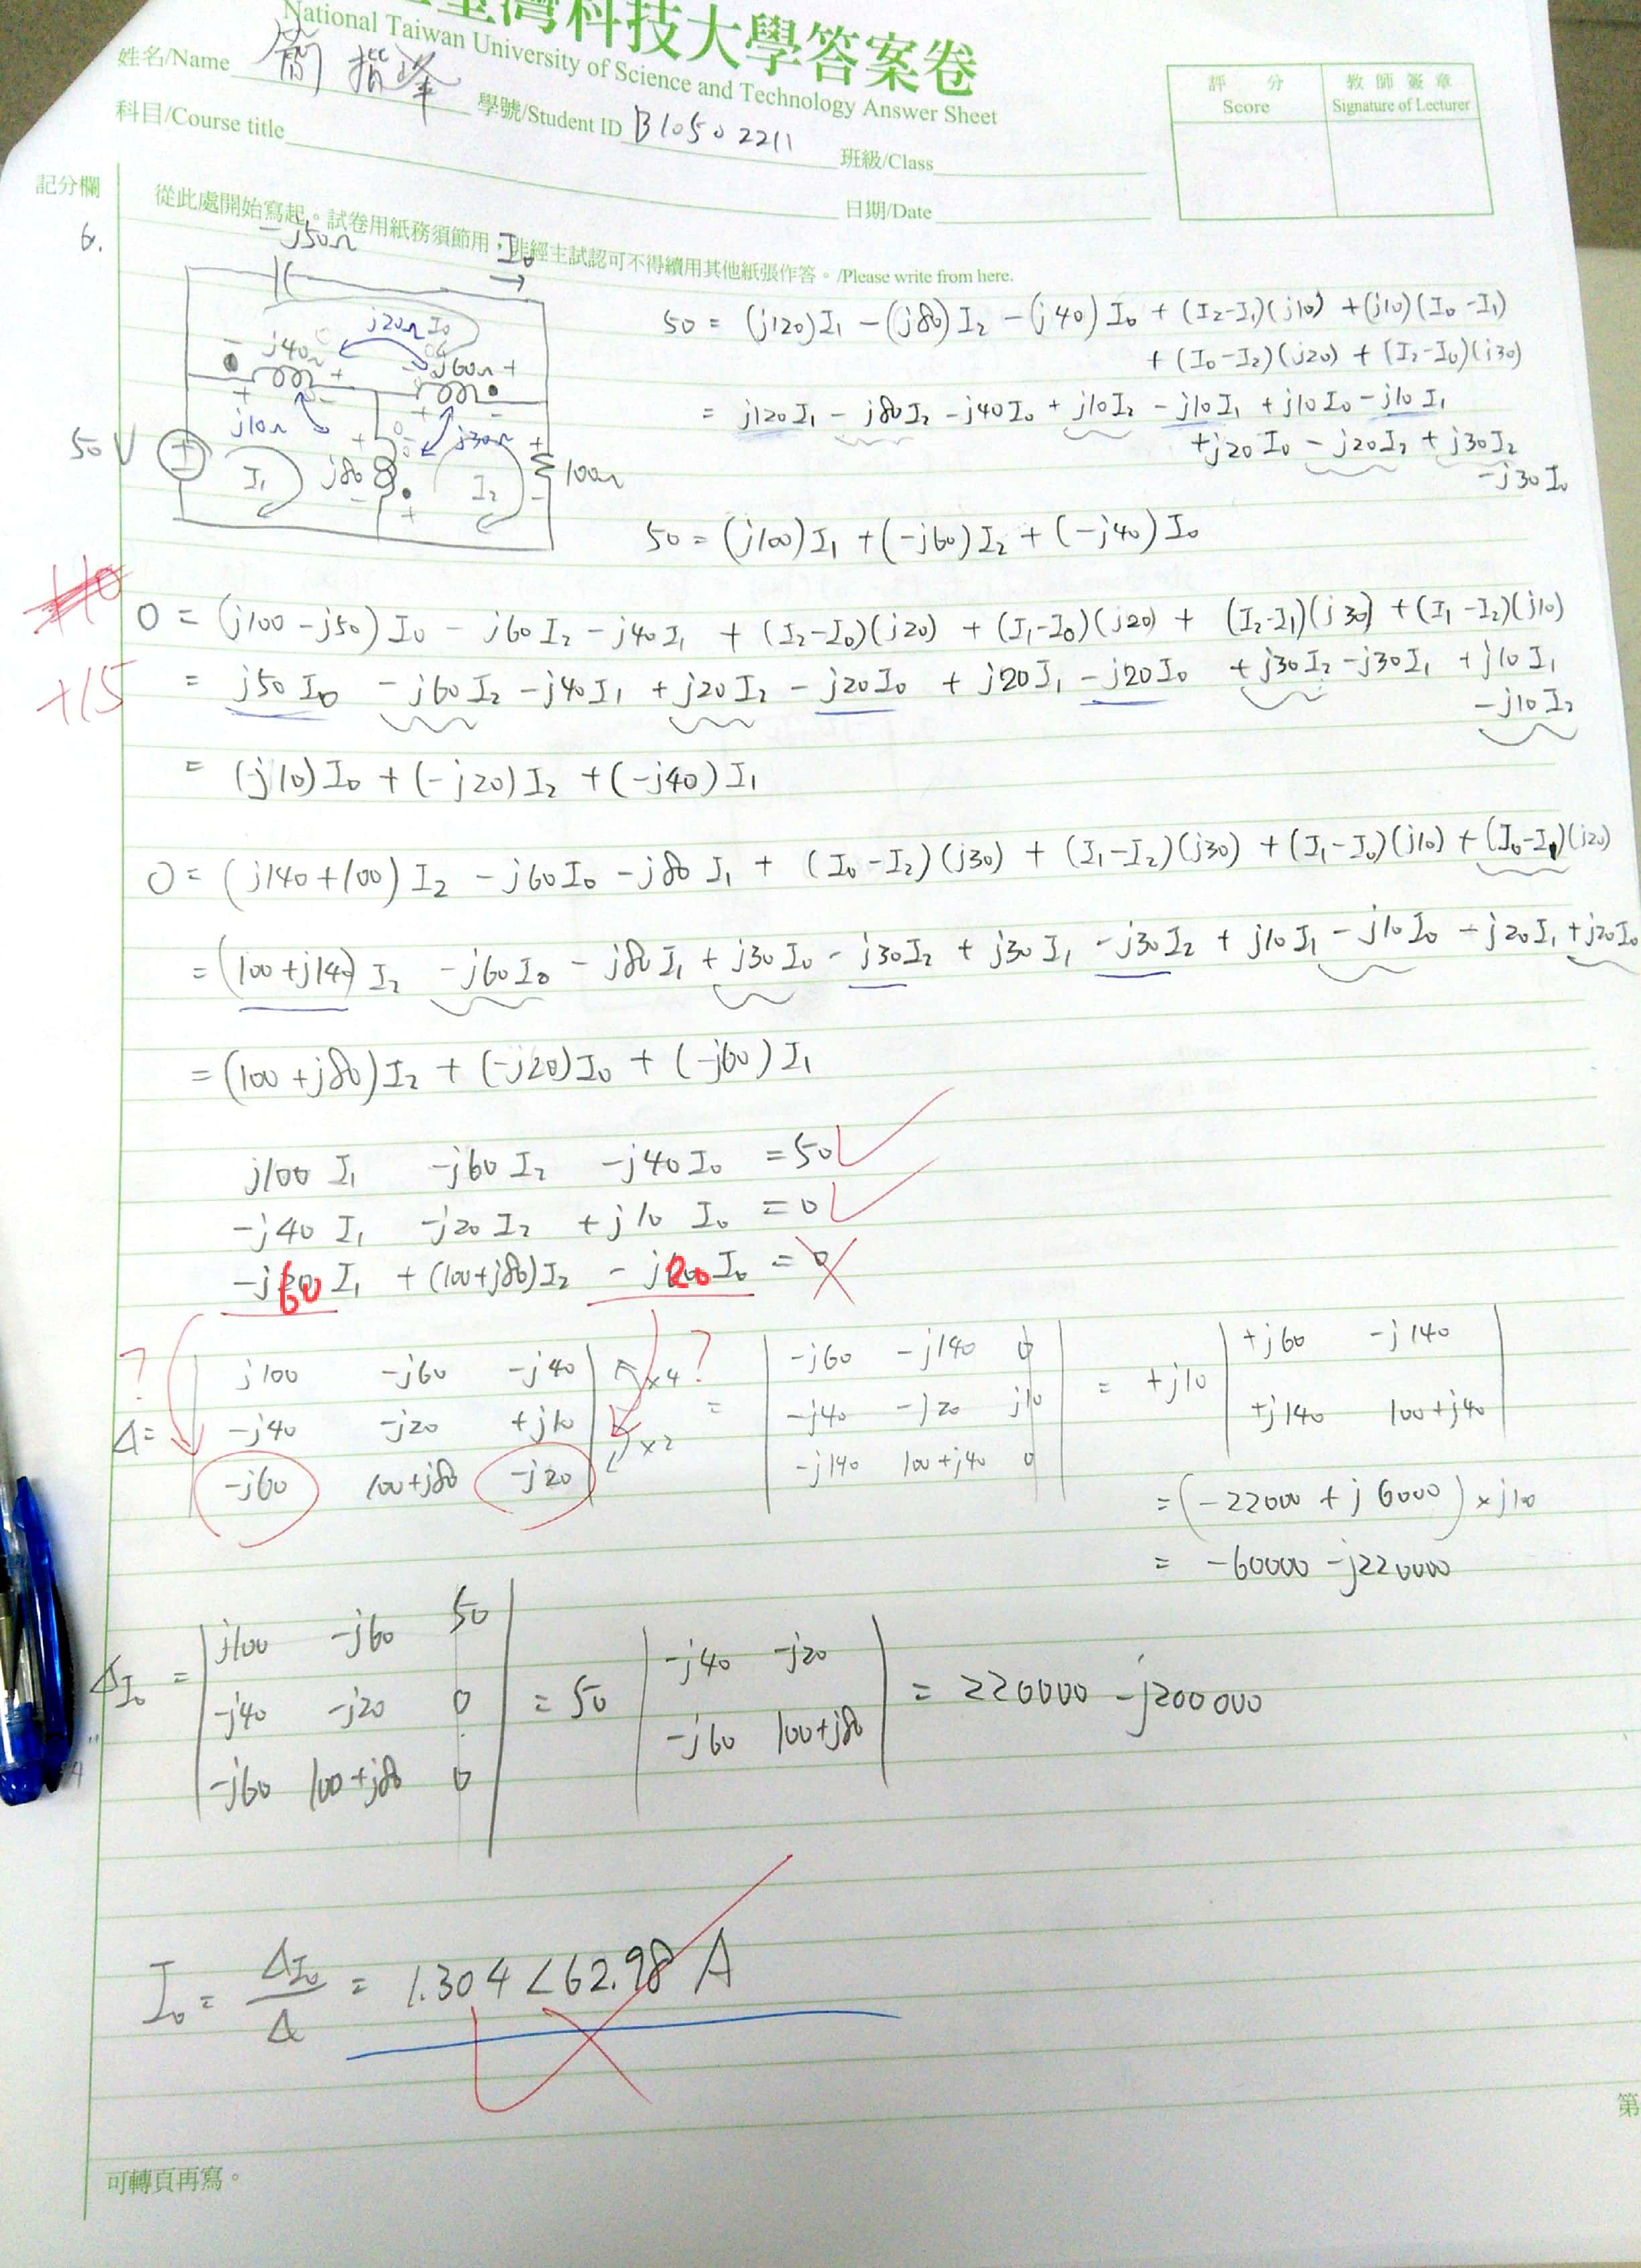 臺灣科技大學答案卷
National Taiwan University of Science and Technology Answer Sheet
姓名/Name 簡 學號/Student ID B10502211 班級/Class
科目/Course title 日期/Date
評 分 Score
教 師 簽 章 Signature of Lecturer
記分欄
從此處開始寫起。試卷用紙務須節用，非經主試認可不得續用其他紙張作答。/Please write from here.
6.
-j50Ω I₀
j20Ω I₀
- j40Ω + - j60Ω +
j10Ω j30Ω
50 V I₁ j80 I₂ 100Ω
50 = (j120)I₁ - (j80)I₂ - (j40)I₀ + (I₂-I₁)(j10) + (j10)(I₀-I₁)
+ (I₀-I₂)(j20) + (I₂-I₀)(j30)
= j120I₁ - j80I₂ - j40I₀ + j10I₂ - j10I₁ + j10I₀ - j10I₁
+j20I₀ - j20I₂ + j30I₂
- j30I₀
50 = (j100)I₁ + (-j60)I₂ + (-j40)I₀
+10
0 = (j100 - j50)I₀ - j60I₂ - j40I₁ + (I₂-I₀)(j20) + (I₁-I₀)(j20) + (I₂-I₁)(j30) + (I₁-I₂)(j10)
+15
= j50I₀ - j60I₂ - j40I₁ + j20I₂ - j20I₀ + j20I₁ - j20I₀ + j30I₂ - j30I₁ + j10I₁
- j10I₂
= (j10)I₀ + (-j20)I₂ + (-j40)I₁
0 = (j140+100)I₂ - j60I₀ - j80I₁ + (I₀-I₂)(j30) + (I₁-I₂)(j30) + (I₁-I₀)(j10) + (I₀-I₁)(j20)
= (100+j140)I₂ - j60I₀ - j80I₁ + j30I₀ - j30I₂ + j30I₁ - j30I₂ + j10I₁ - j10I₀ - j20I₁ + j20I₀
= (100+j80)I₂ + (-j20)I₀ + (-j60)I₁
j100 I₁ -j60 I₂ -j40 I₀ = 50
-j40 I₁ -j20 I₂ +j10 I₀ = 0
-j60 I₁ + (100+j80)I₂ - j20 I₀ = 0
? ?
j100 -j60 -j40 ×4 -j60 -j140 0 +j60 -j140
Δ= -j40 -j20 +j10 = -j40 -j20 j10 = +j10
-j60 100+j80 -j20 ×2 -j140 100+j40 0 +j140 100+j40
= (-22000 + j6000) × j10
= -60000 - j220000
j100 -j60 50
ΔI₀ = -j40 -j20 0 = 50 -j40 -j20 = 220000 - j200000
-j60 100+j80 0 -j60 100+j80
I₀ = ΔI₀/Δ = 1.304∠62.98 A
第
可轉頁再寫。